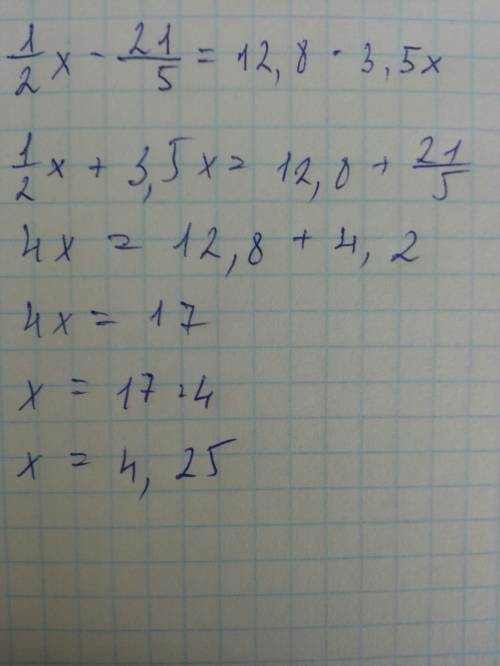 1/2 x - 21/5 = 12,8 - 3,5x
1/2 x + 3,5x = 12,8 + 21/5
4x = 12,8 + 4,2
4x = 17
x = 17:4
x = 4,25